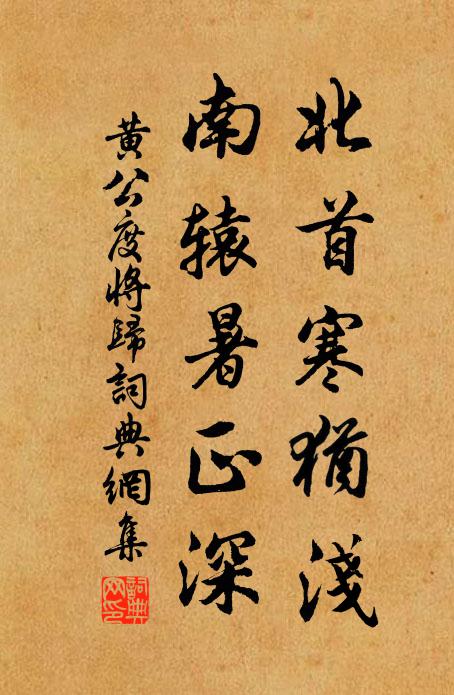 北首寒猶淺
南辕暑正深
黄公度將歸詞典網集
詞典网印